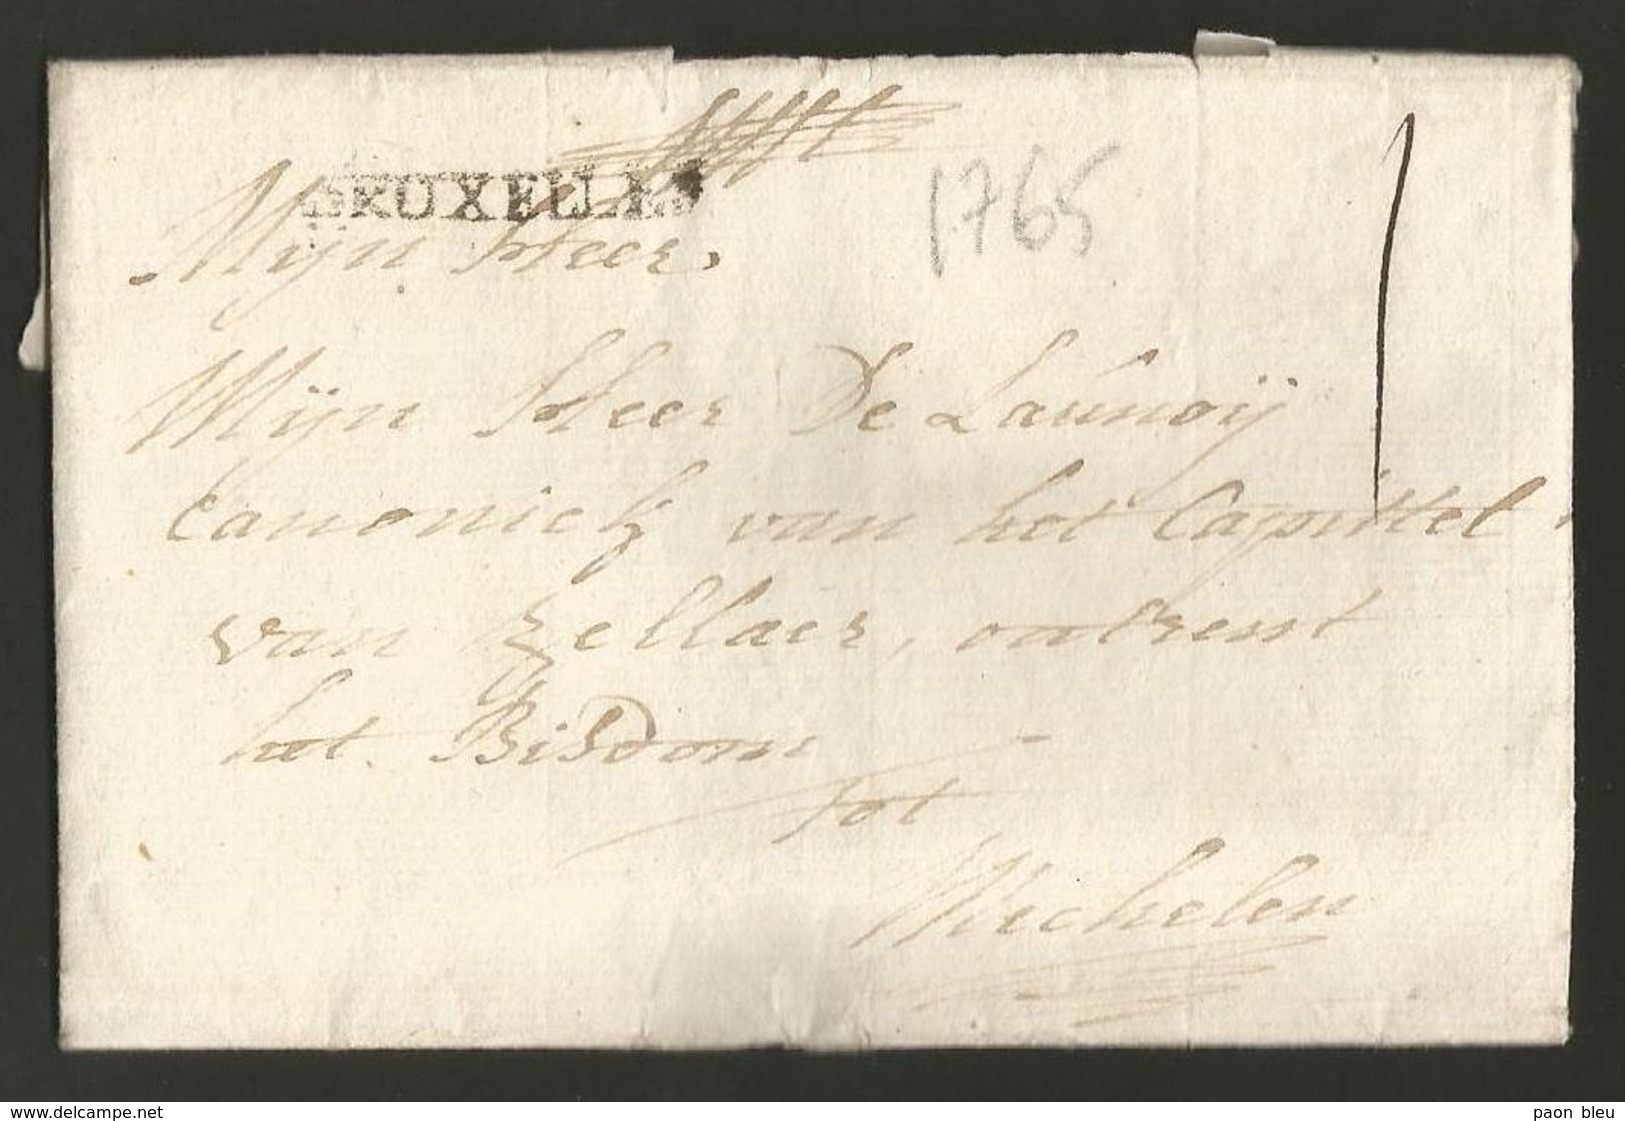 BRUXELLES
1765
Mijn Heer,
Mijn Heer De Launoÿ
canonick van het Capittel
van Zellaer, ontrent
het Bisdom
tot
Mechelen
www.delcampe.net
paon bleu